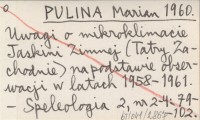 PULINA Marian 1960.
Uwagi o mikroklimacie
Jaskini Zimnej (Tatry Za-
chodnie) na podstawie obser-
wacji w latach 1958-1961.
- Speleologia 2, nr 2-4: 79-
-102.